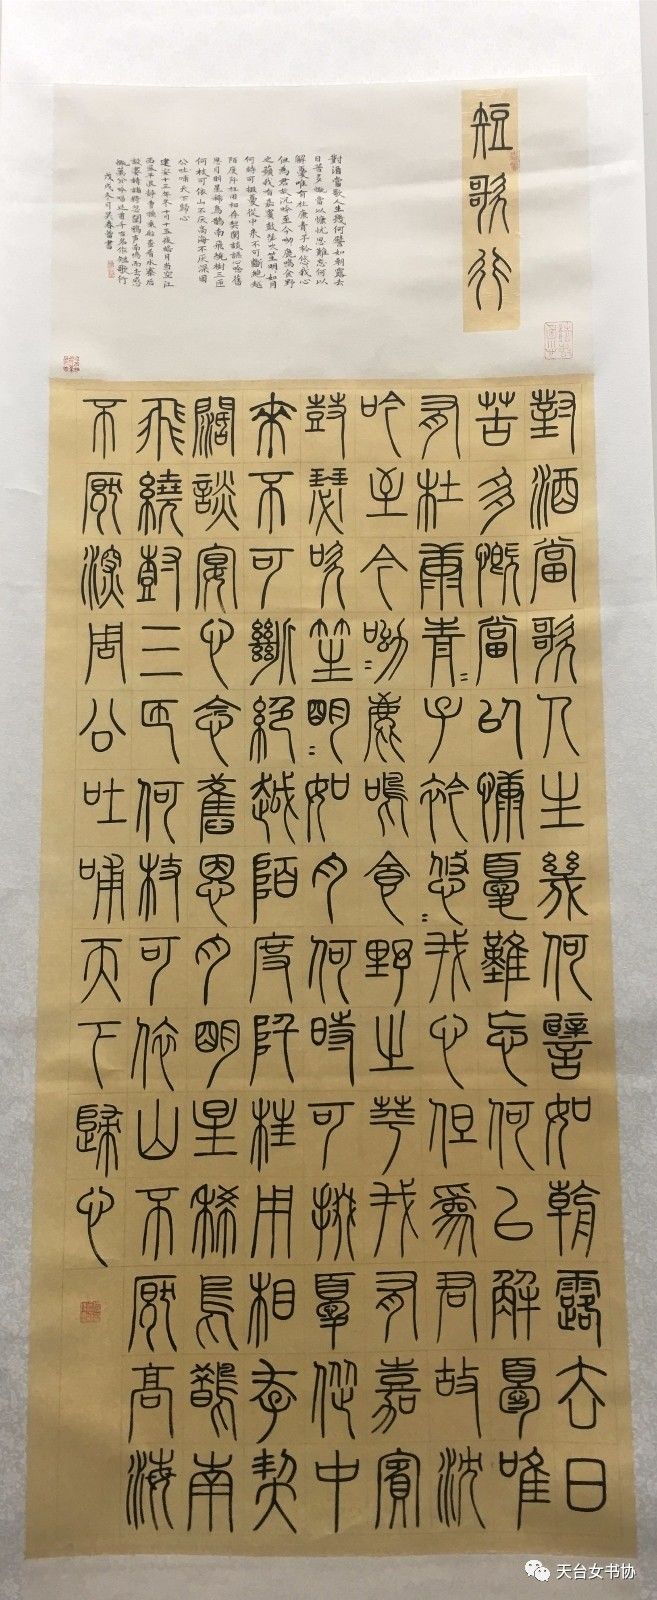 短歌行
對酒當歌人生幾何譬如朝露去
日苦多慨當以慷忧思難忘何以
解憂唯有杜康青子衿悠我心
但為君故沉吟至今呦鹿鳴食野
之蘋我有嘉賓鼓瑟吹笙明如月
何時可掇憂從中来不可斷絕越
陌度阡枉用相存契闊談讌心念舊
恩月明星稀烏鵲南飛繞樹三匝
何枝可依山不厌高海不厌深周
公吐哺天下歸心
建安十三年冬十一月十五夜皓月当空江
面風平浪静曹操乘船查看水寨后
設宴請諸將忽聞鸦声南鳴而去感
慨萬分吟唱这首千古名作短歌行
戊戌冬月吴春蕾書
對酒當歌人生幾何譬如朝露去日
苦多慨當以慷憂難忘何以解憂唯
有杜康青=子衿悠=我心但為君故沈
吟至今呦=鹿鳴食野之苹我有嘉賓
鼓瑟吹笙明=如月何時可掇憂從中
來不可斷絕越陌度阡枉用相存契
闊談宴心念舊恩月明星稀烏鵲南
飛繞樹三匝何枝可依山不厭高海
不厭深周公吐哺天下歸心
天台女书协